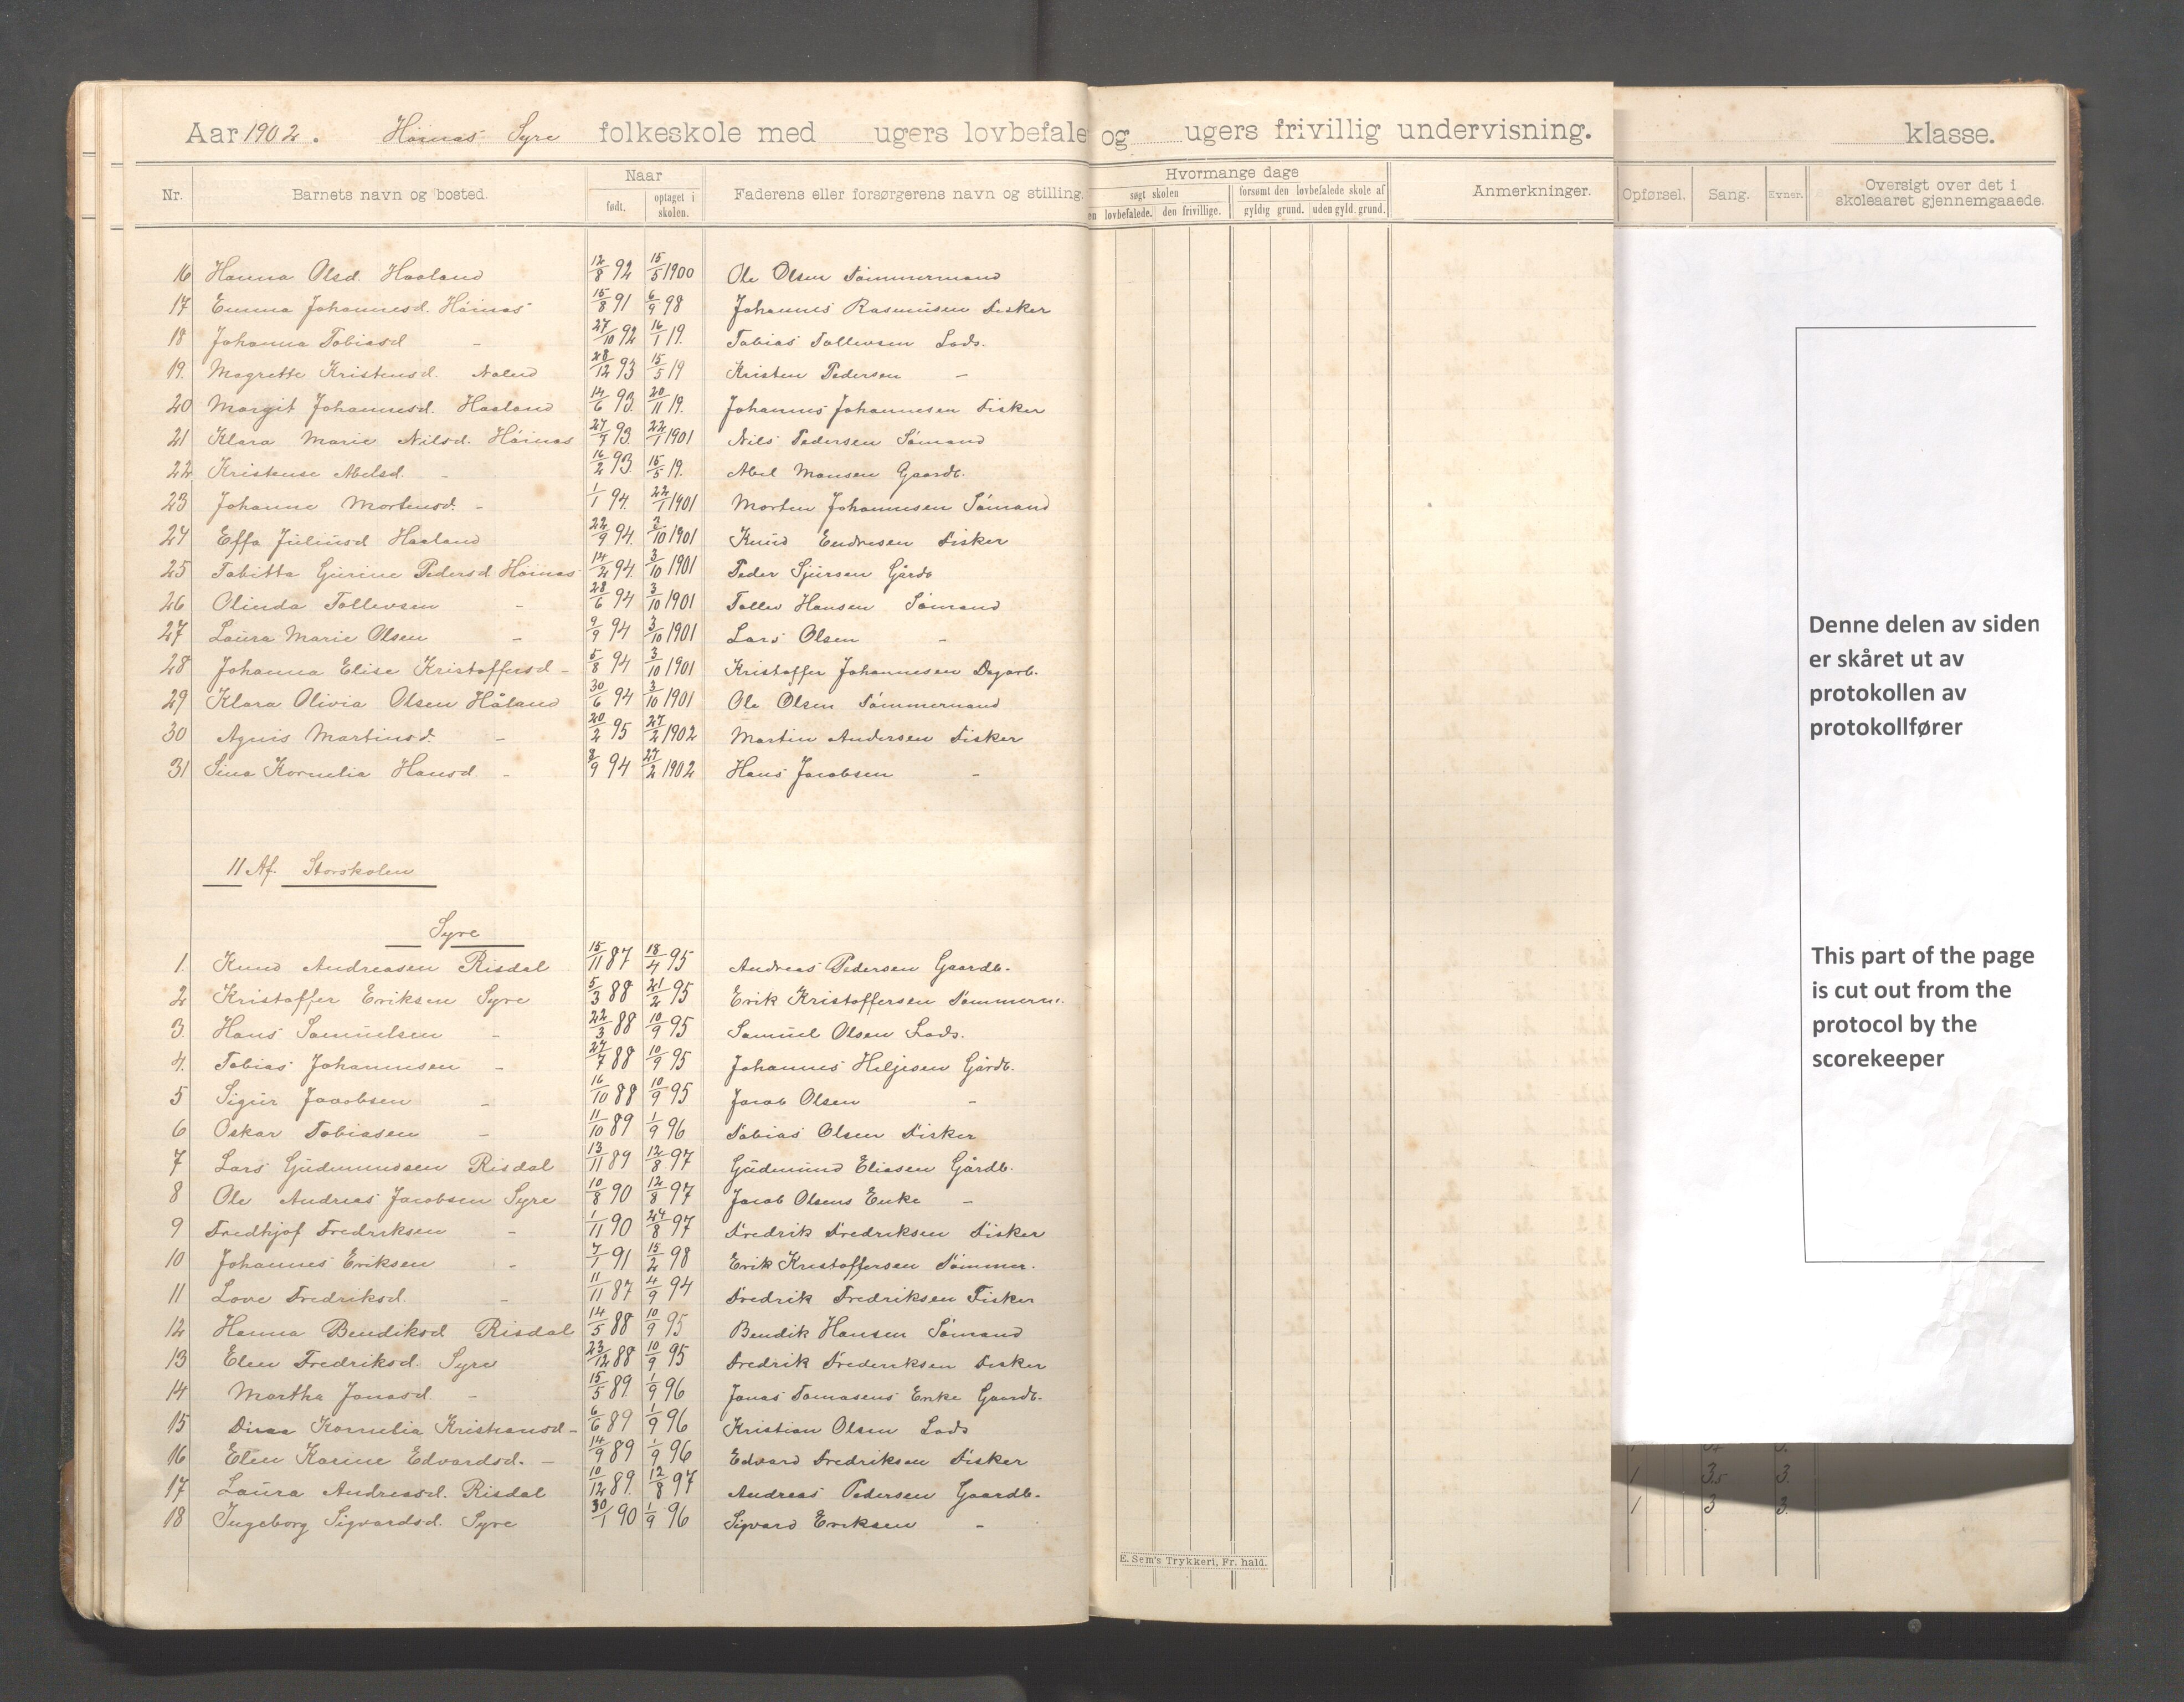 Aar 1902. Høinæs Syre folkeskole med ugers lovbefale og ugers frivillig undervisning. klasse.
Nr. Barnets navn og bosted. Naar født. optaget i skolen. Faderens eller forsørgerens navn og stilling.
Hvormange dage
søgt skolen forsømt den lovbefalede skole af
en lovbefalede. den frivillige. gyldig grund. uden gyld. grund.
Anmerkninger. Opførsel. Sang. Evner. Oversigt over det i skoleaaret gjennemgaaede.
16 Hanna Olsd. Haaland 12/8 92 15/5 1900 Ole Olsen Tömmermand
17 Emma Johannesd. Höinæs 15/8 91 6/9 98 Johannes Rasmusen Fisker
18 Johanna Tobiasd - 27/10 92 16/1 19. Tobias Tollevsen Lods.
19. Magrethe Kristensd. 28/12 93 15/5 19 Kristen Pedersen -
20 Margit Johannesd. Haaland 14/6 93. 20/11 19. Johannes Johannesen Fisker
21 Klara Marie Nilsd. Höinæs 27/7 93. 22/1 1901 Nils Pedersen Sömand
22 Kristense Abelsd. - 16/2 93. 15/5 19. Abel Monsen Gaardb.
23 Johanne Mortensd. - 1/1 94. 22/1 1901 Morten Johannesen Sömand
24 Effa Juliusd Haaland 22/9 94. 3/10 1901 Knud Endresen Fisker
25 Tabitta Gurine Pedersd Höinæs 14/2 94. 3/10 1901 Peder Sjursen Gårdb
26 Olinda Tollevsen - 28/6 94 3/10 1901 Tollev Hansen Sömand
27 Laura Marie Olsen - 9/9 94 3/10 1901 Lars Olsen -
28 Johanna Elise Kristoffersd - 5/8 94 3/10 1901 Kristoffer Johannesen Dagarb.
29 Klara Olivia Olsen Håland 30/6 94 3/10 1901 Ole Olsen Tömmermand
30 Agnes Martinsd. - 20/2 95 27/2 1902 Martin Andersen Fisker
31 Sina Kornelia Hansd. - 8/9 94 27/2 1902 Hans Jacobsen -
11 Af. Storskolen
Syre
1. Knud Andreasen Risdal 15/11 87 18/4 95 Andreas Pedersen Gaardb.
2 Kristoffer Eriksen Syre 5/3 88 21/2 95 Erik Kristoffersen Tömmerm.
3. Hans Samuelsen - 22/3 88 10/9 95 Samuel Olsen Lods.
4. Tobias Johannesen - 27/7 88 10/9 95 Johannes Heljesen Gårdb.
5 Sigur Jacobsen - 16/10 88 10/9 95 Jacob Olsen -
6 Oskar Tobiasen - 11/10 89 1/9 96 Tobias Olsen Fisker
7 Lars Gudmundsen Risdal 13/11 89 12/8 97 Gudmund Eliasen Gårdb.
8 Ole Andreas Jacobsen Syre 10/8 90 12/8 97 Jacob Olsens Enke -
9 Fredhjof Fredriksen - 1/11 90 24/8 97 Fredrik Fredriksen Fisker
10 Johannes Eriksen - 7/1 91 15/2 98 Erik Kristoffersen Tömmer.
11 Love Fredriksd. - 11/11 87 4/9 94 Fredrik Fredriksen Fisker
12 Hanna Bendiksd Risdal 14/5 88 10/9 95 Bendik Hansen Sömand
13 Elen Fredriksd. Syre 23/12 88 10/9 95 Fredrik Frederiksen Fisker
14 Martha Jonasd. - 15/5 89. 1/9 96 Jonas Tomasens Enke Gaardb.
15 Dina Kornelia Kristiansd - 6/6 89 1/9 96 Kristian Olsen Lods
16 Elen Karine Edvardsd. - 14/9 89 1/9 96 Edvard Fredriksen Fisker
17 Laura Andreasd. Risdal 10/12 89. 12/8 97 Andreas Pedersen Gaardb.
18 Ingeborg Sigvardsd. Syre 30/1 90 1/9 96 Sigvard Eriksen -
E. Sem's Trykkeri, Fr. hald.
Denne delen av siden
er skåret ut av
protokollen av
protokollfører
This part of the page
is cut out from the
protocol by the
scorekeeper
1 3.5 3.
1 3 3.